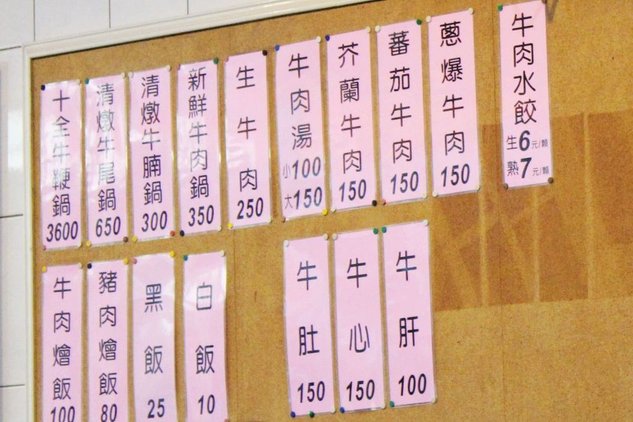 十全牛鞭鍋 3600
清燉牛尾鍋 650
清燉牛腩鍋 300
新鮮牛肉鍋 350
生牛肉 250
牛肉湯 小100 大150
芥蘭牛肉 150
蕃茄牛肉 150
蔥爆牛肉 150
牛肉水餃 生6元/顆 熟7元/顆
牛肉燴飯 100
豬肉燴飯 80
黑飯 25
白飯 10
牛肚 150
牛心 150
牛肝 100